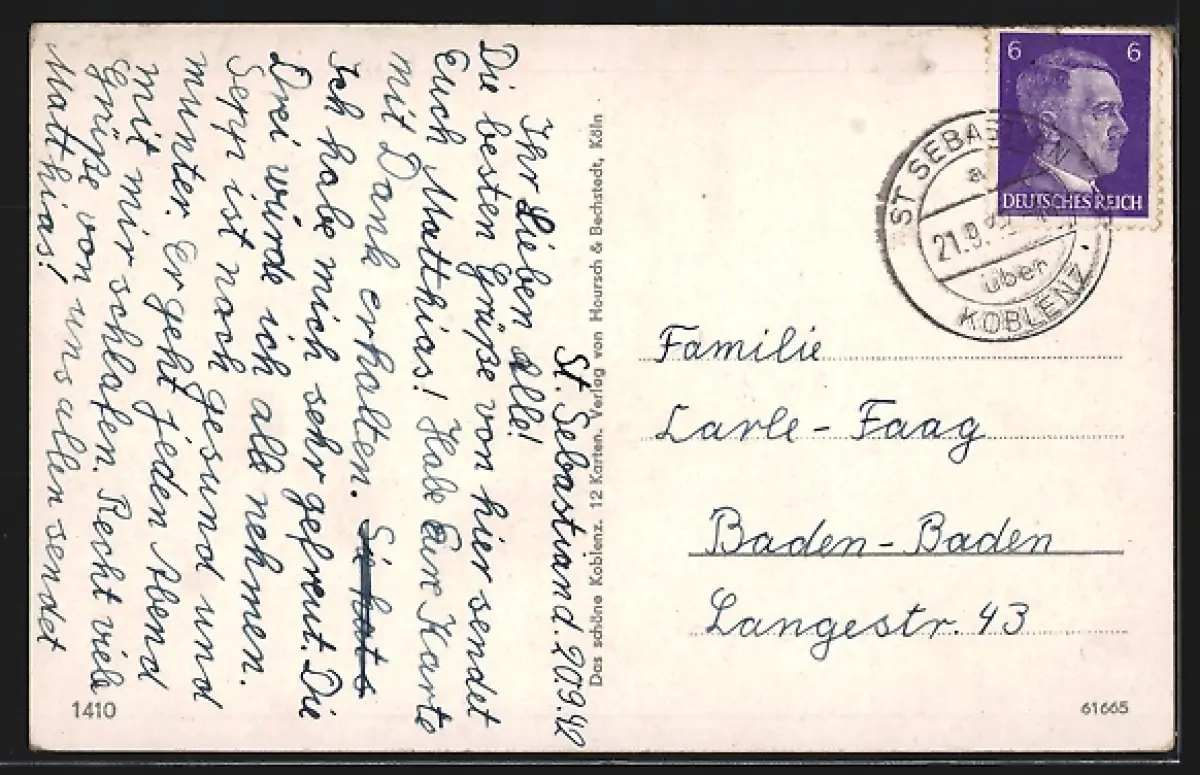 St. Sebastian d. 20.9.42
Ihr Lieben alle!
Die besten Grüße von hier sendet
Euch Matthias! Habe Eure Karte
mit Dank erhalten. Sie hats
Ich habe mich sehr gefreut. Die
Drei würde ich alle nehmen.
Sepp ist noch gesund und
munter. Er geht jeden Abend
mit mir schlafen. Recht viele
Grüße von uns allen sendet
Matthias!
1410
Das schöne Koblenz. 12 Karten. Verlag von Hoursch & Bechstedt, Köln
6 6
DEUTSCHES REICH
ST SEBASTIAN
a
21.9.
über
KOBLENZ
Familie
Larle-Faag
Baden-Baden
Langestr. 43
61665